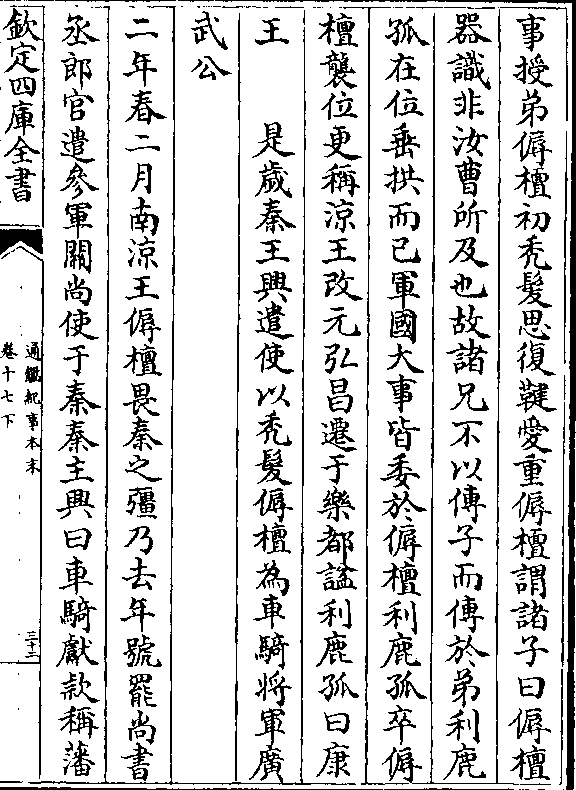 事授弟傉檀初禿髮思復鞬愛重傉檀謂諸子曰傉檀
器識非汝曹所及也故諸兄不以傳子而傳於弟利鹿
孤在位垂拱而已軍國大事皆委於傉檀利鹿孤卒傉
檀襲位更稱涼王改元弘昌遷于樂都諡利鹿孤曰康
王　　是歲秦王興遣使以禿髮傉檀為車騎將軍廣
武公
二年春二月南涼王傉檀畏秦之彊乃去年號罷尚書
丞郎官遣參軍關尚使于秦秦主興曰車騎獻款稱藩
欽定四庫全書
通鑑紀事本末
卷十七下
三十二